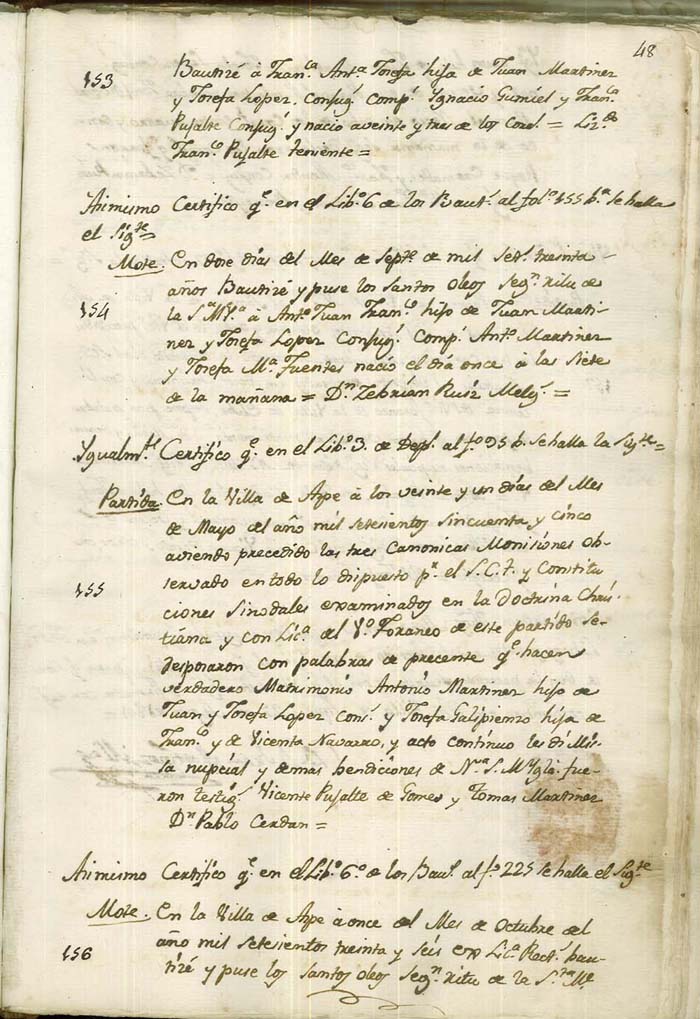 48
153
Bautizé à Franca. Anta. Josefa hija de Juan Martinez
y Josefa Lopez, Consug. Comp. Ygnacio Gumiel y Franca.
Pujalte Consug. y nacio a veinte y tres de los Cord. = Lizdo.
Franco. Pujalte teniente =
Asimismo Certifico qe. en el Libo. 6 de los Baut. al folo. 155 ba. se halla
el Sigte.=
Mote. En doze dias del Mes de Septe. de mil Sets. treinta
años Bautizé y puse los Santos Oleos Segn. ritu de
154
la Sta. M. Ya. à Anto. Juan Franco. hijo de Juan Marti-
nez y Josefa Lopez Consug. Comp. Anto. Martinez
y Josefa Ma. Fuentes nació el día once à las Siete
de la mañana = Dn. Zebrían Ruiz Melg. =
Ygualmte. Certifico qe. en el Libo. 3. de Desp. al fo. 95 b. se halla la Sigte.=
Partida. En la Villa de Aspe à los veinte y un dias del Mes
de Mayo del año mil setesientos sincuenta, y cinco
aviendo precedido las tres Canonicas Monisiones ob-
155
servado en todo lo dispuesto pr. el S.C.T. y Constitu
ciones Sinodales examinados en la Doctrina Chris-
tiana y con Lica. del Vo. Foraneo de este partido se-
desposaron con palabras de precente qe. hacen
verdadero Matrimonio Antonio Martinez hijo de
Juan y Josefa Lopez Cons. y Josefa Galipienzo hija de
Franco. y de Vicenta Navarro, y acto continuo les di Mis-
sa nupcial y demas bendiciones de Nra. S. M. Ygla. fue-
ron testig. Vicente Pujalte de Gomes y Tomas Martinez
Dn. Pablo Cerdan =
Asimismo Certifico qe. en el Libo. 6o. de los Bau. al fo. 225 se halla el Sigte.
Mote. En la Villa de Aspe à once del Mes de Octubre del
156
año mil setesientos treinta y seis ex Lica. Rect. bau-
tizé y puse los santos oleos segn. ritu de la Sta. Me.